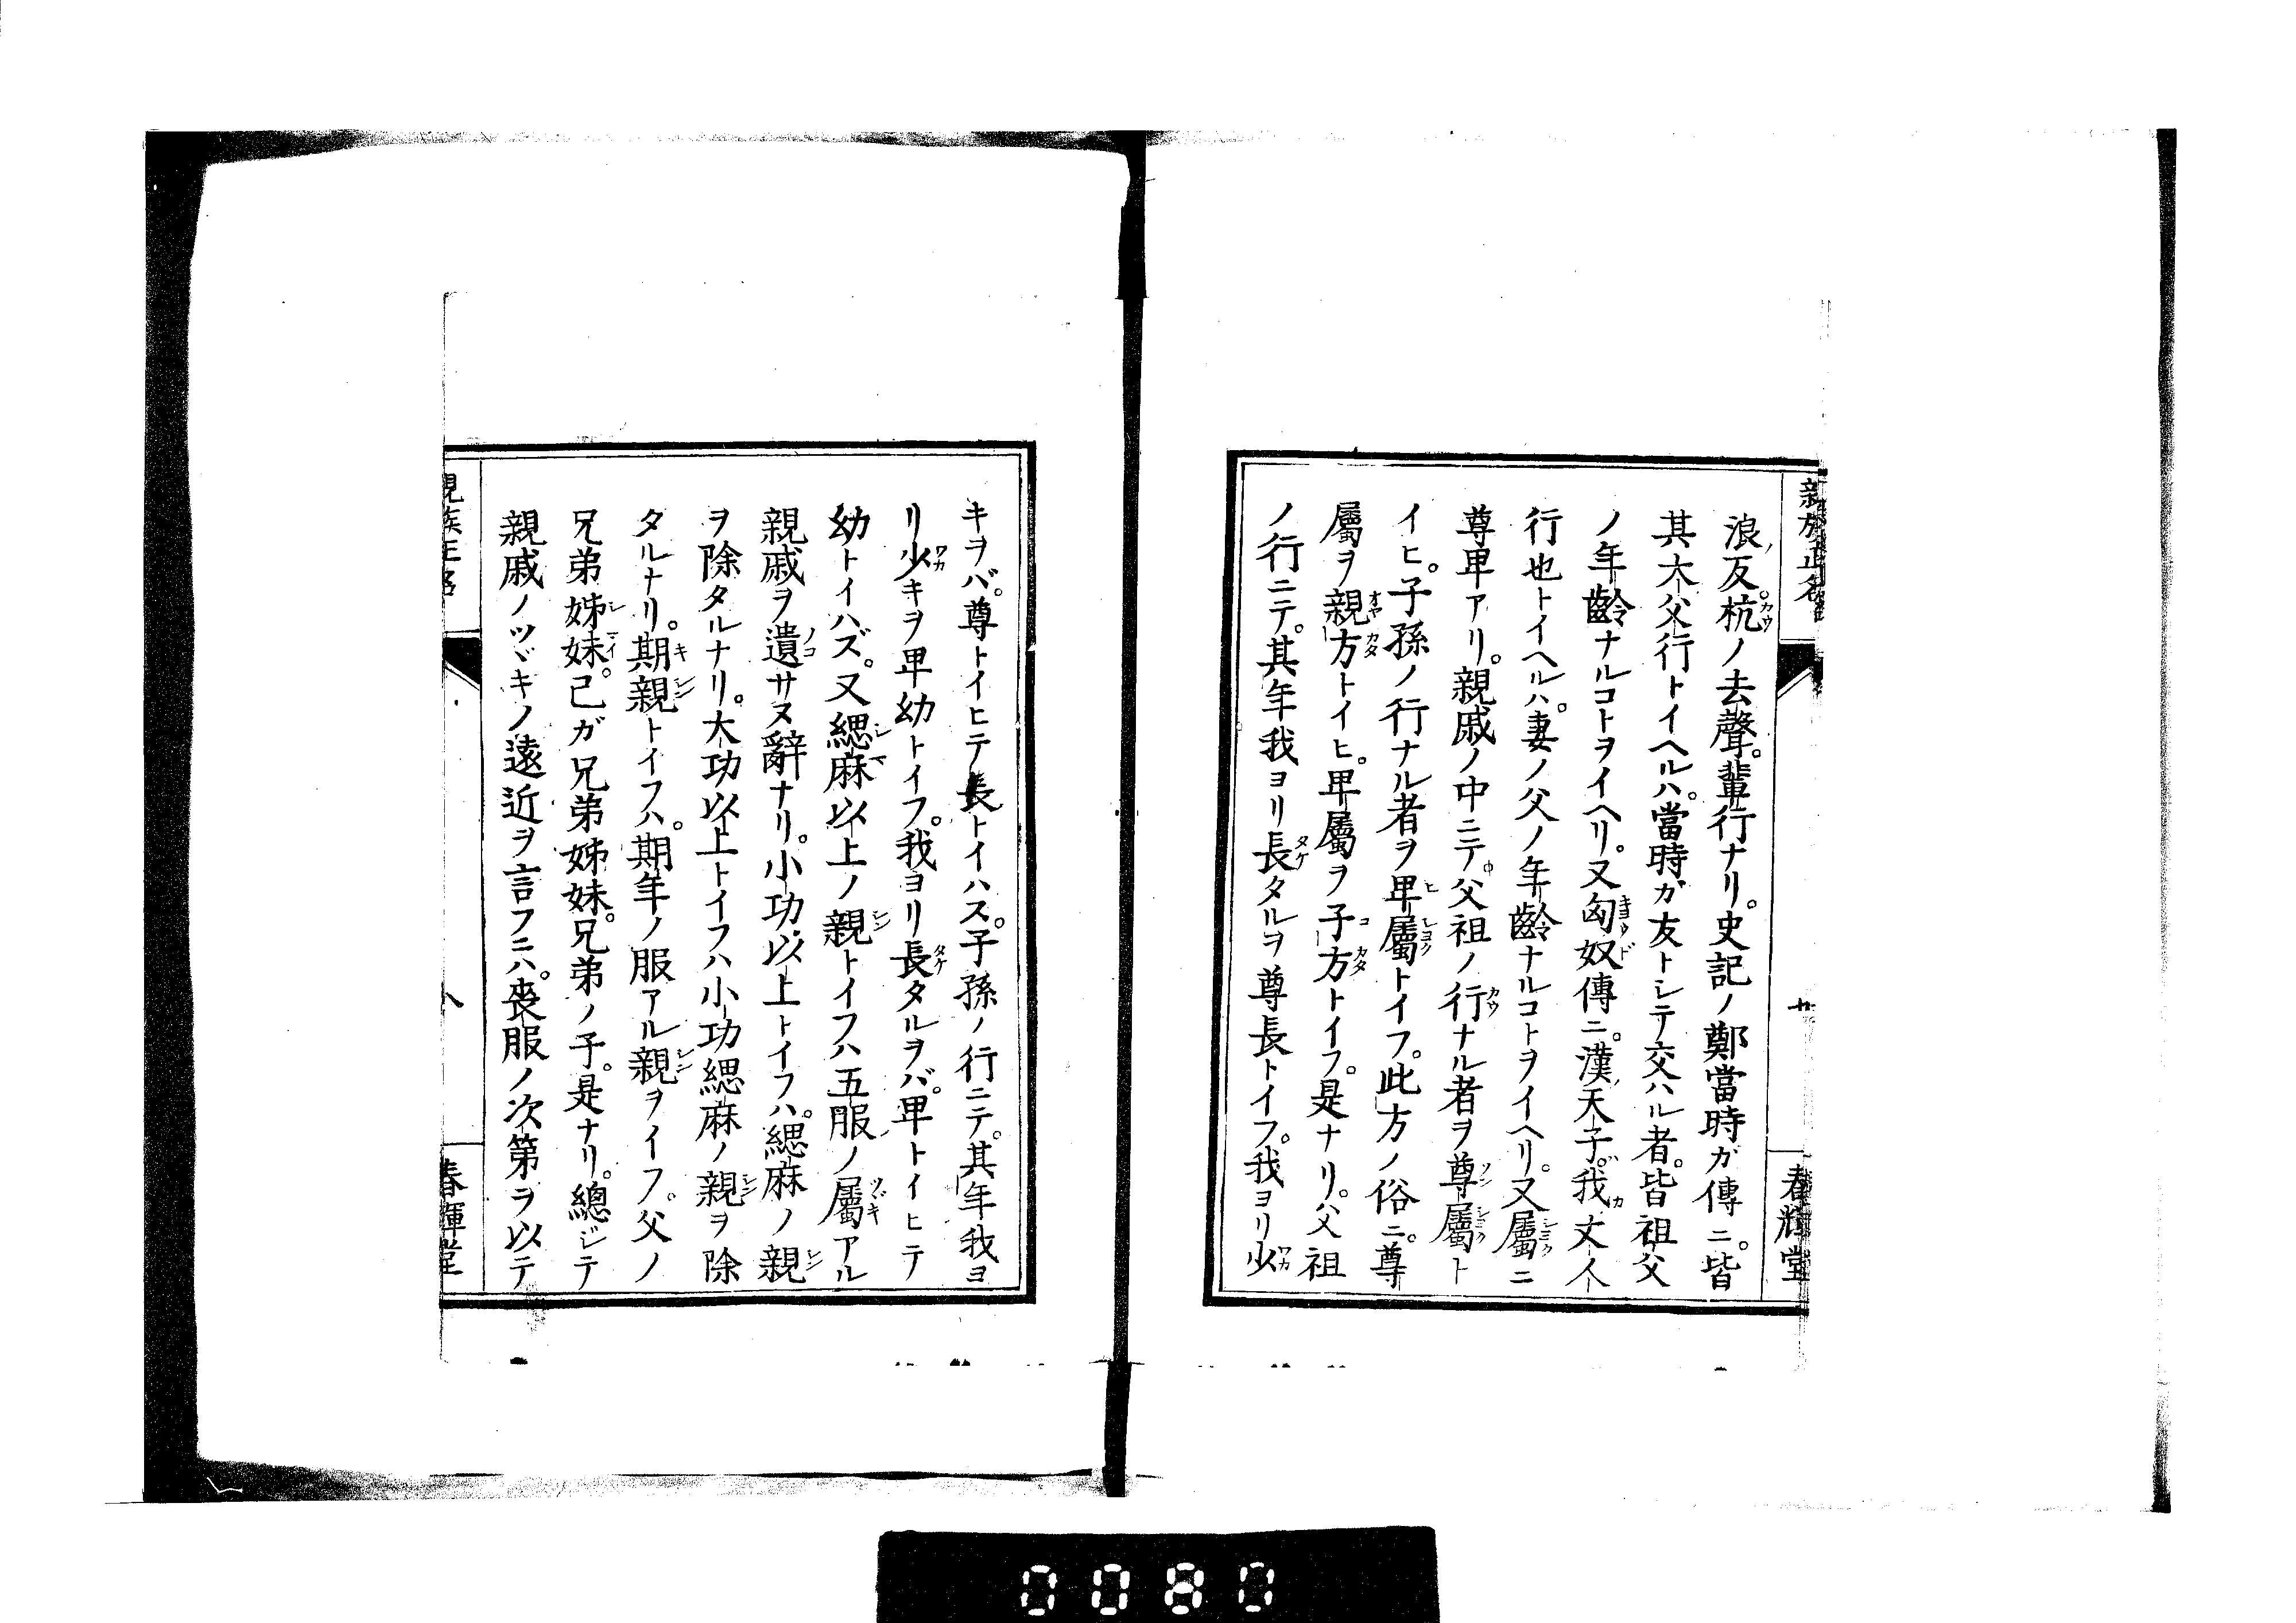 親族正名
廿
春輝堂
浪反杭ノ去聲。輩行ナリ。史記ノ鄭當時ガ傳ニ。皆
其大父行トイヘルハ。當時ガ友トシテ交ハル者。皆祖父
ノ年齡ナルコトヲイヘリ。又匈奴傳ニ。漢天子。我丈人
行也トイヘルハ。妻ノ父ノ年齡ナルコトヲイヘリ。又屬ニ
尊卑アリ。親戚ノ中ニテ。父祖ノ行ナル者ヲ尊屬ト
イヒ。子孫ノ行ナル者ヲ卑屬トイフ。此方ノ俗ニ。尊
屬ヲ親方トイヒ。卑屬ヲ子方トイフ。是ナリ。父祖
ノ行ニテ。其年我ヨリ長タルヲ尊長トイフ。我ヨリ少
キヲバ。尊トイヒテ長トイハス。子孫ノ行ニテ。其年我ヨ
リ少キヲ卑幼トイフ。我ヨリ長タルヲバ。卑トイヒテ
幼トイハズ。又緦麻以上ノ親トイフハ五服ノ屬アル
親戚ヲ遺サヌ辭ナリ。小功以上トイフハ。緦麻ノ親
ヲ除タルナリ。大功以上トイフハ小功緦麻ノ親ヲ除
タルナリ。期親トイフハ。期年ノ服アル親ヲイフ。父ノ
兄弟姊妹。己ガ兄弟姊妹。兄弟ノ子。是ナリ。總ジテ
親戚ノツヾキノ遠近ヲ言フニハ。喪服ノ次第ヲ以テ
春輝堂
0080